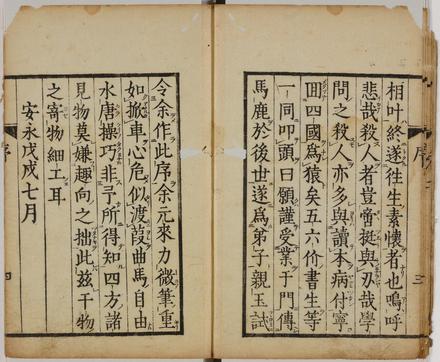 相叶終遂往生素懷者也嗚呼
悲哉殺人者豈啻挺與刃哉學
問之殺人亦多與讀本病付寧
囬四國爲猿矣五六价書生等
一同叩頭曰願謹受業于門傳
馬鹿於後世遂爲弟子親玉試
序
三
令余作此序余元來力微筆重
如掀車心危似渡葭曲馬自由
水唐操巧非予所得知四方諸
見物莫嫌趣向之拙此茲干物
之寄物細工耳
安永戊戌七月
序
四